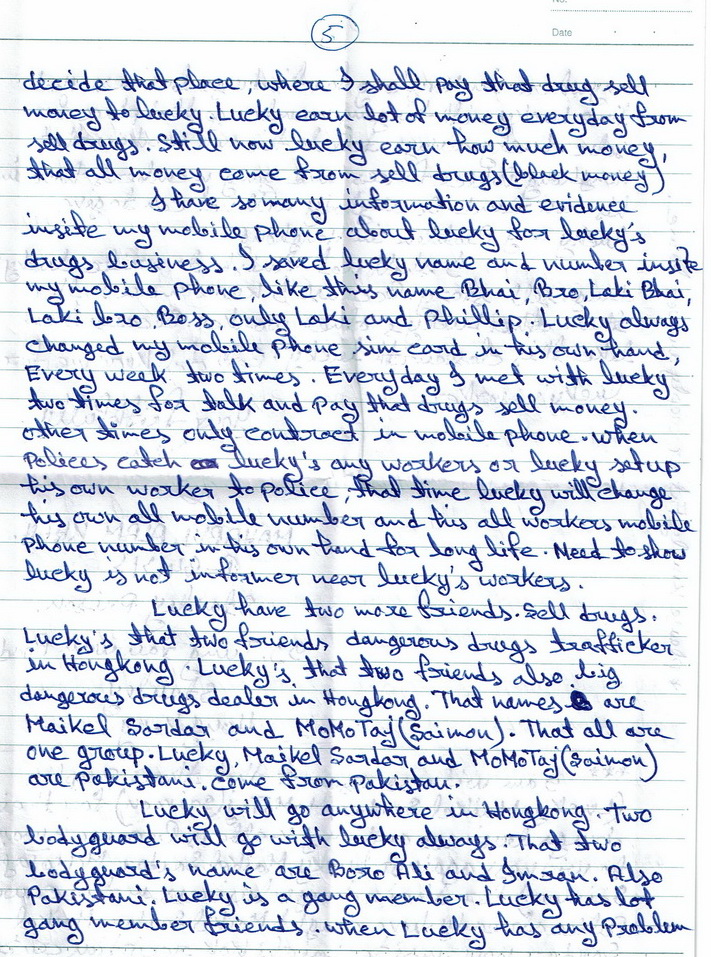 No.
Date
5
decide that place, where I shall pay that drug sell
money to lucky. Lucky earn lot of money everyday from
sell drugs. Still now lucky earn how much money,
that all money come from sell drugs (black money)
I have so many information and evidence
insite my mobile phone about lucky for lucky's
drugs business. I saved lucky name and number insite
my mobile phone, like this name Bhai, Bro, Laki Bhai,
Laki bro, Boss, only Laki and Phillip. Lucky always
changed my mobile phone sim card in his own hand,
Every week two times. Everyday I met with lucky
two times for talk and pay that drugs sell money.
other times only contract in mobile phone. when
Polices catch lucky's any workers or lucky setup
his own worker to police, that time lucky will change
his own all mobile number and his all workers mobile
phone number in his own hand for long life. Need to show
lucky is not informer near lucky's workers.
Lucky have two more friends. Sell drugs.
Lucky's that two friends dangerous drugs trafficker
in Hongkong. Lucky's that two friends also big
dangerous drugs dealer in Hongkong. That names are
Maikel Sardar and MoMoTaj (Saimon). That all are
one group. Lucky, Maikel Sardar and MoMoTaj (Saimon)
are Pakistani. come from Pakistan.
Lucky will go anywhere in Hongkong. Two
bodyguard will go with lucky always. That two
bodyguard's name are Boro Ali and Imran. Also
Pakistani. Lucky is a gang member. Lucky has lot
gang member friends. when Lucky has any Problem